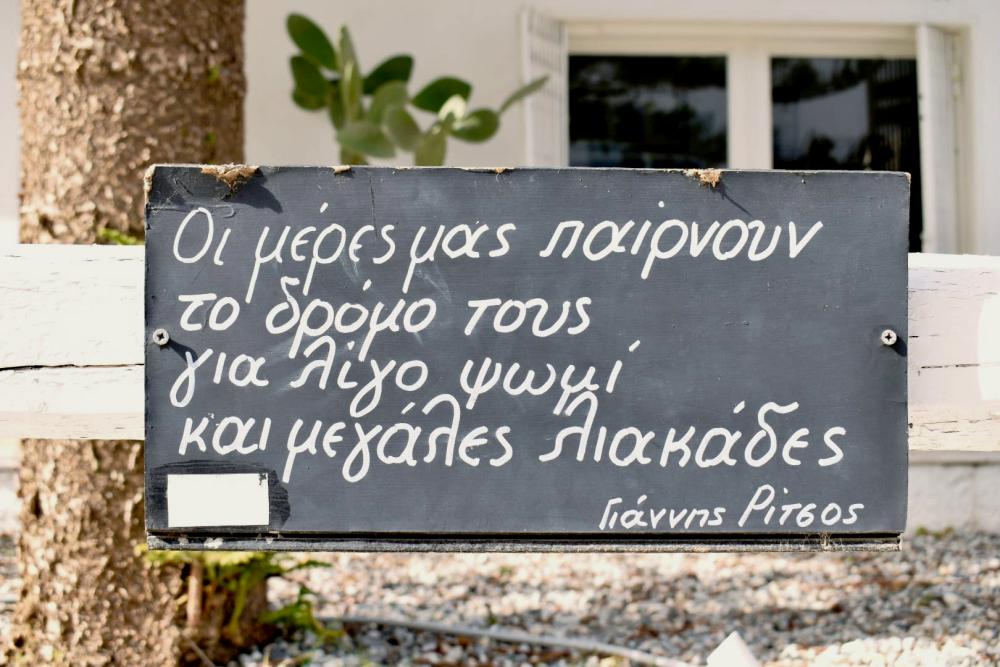 Οι μέρες μας παίρνουν
το δρόμο τους
για λίγο ψωμί
και μεγάλες λιακάδες
Γιάννης Ρίτσος